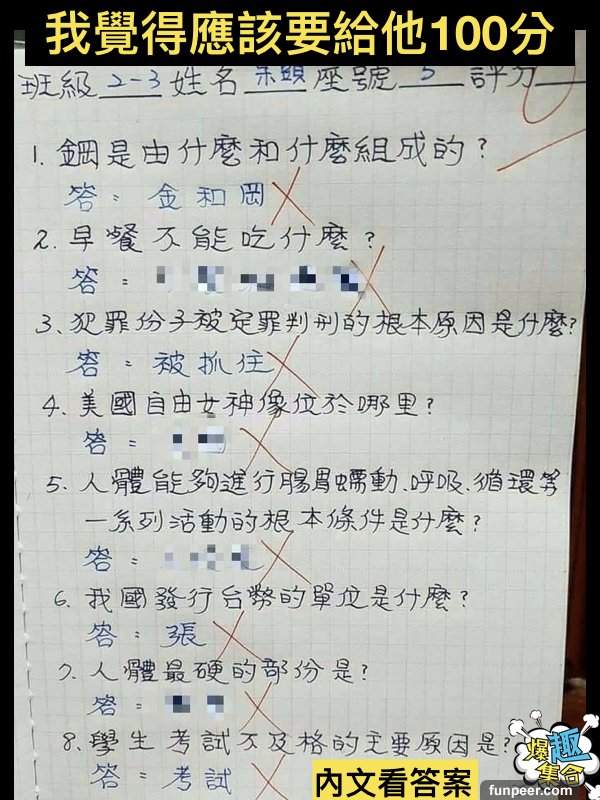 我覺得應該要給他100分
班級 2-3 姓名 呆頭 座號 5 評分
1. 鋼是由什麼和什麼組成的?
答: 金和岡
2. 早餐不能吃什麼?
答:
3. 犯罪份子被定罪判刑的根本原因是什麼?
答: 被抓住
4. 美國自由女神像位於哪里?
答:
5. 人體能夠進行腸胃蠕動、呼吸、循環等
一系列活動的根本條件是什麼?
答:
6. 我國發行台幣的單位是什麼?
答: 張
7. 人體最硬的部份是?
答:
8. 學生考試不及格的主要原因是?
答: 考試
內文看答案
爆趣集合
funpeer.com